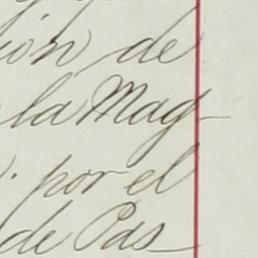 ión de
la Mag-
por el
de Pas-